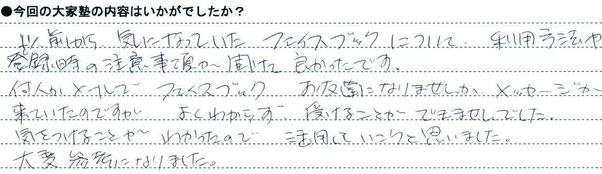 ●今回の大家塾の内容はいかがでしたか？
以前から 気になっていた フェイスブックについて、利用方法や
登録時の注意事項が 聞けて 良かったです。
何人か メールで フェイスブック お友達になりませんか メッセージが
来ていたのですが よくわからず 受けることが できませんでした。
気をつけることが わかったので 活用していこうと思いました。
大変 参考になりました。